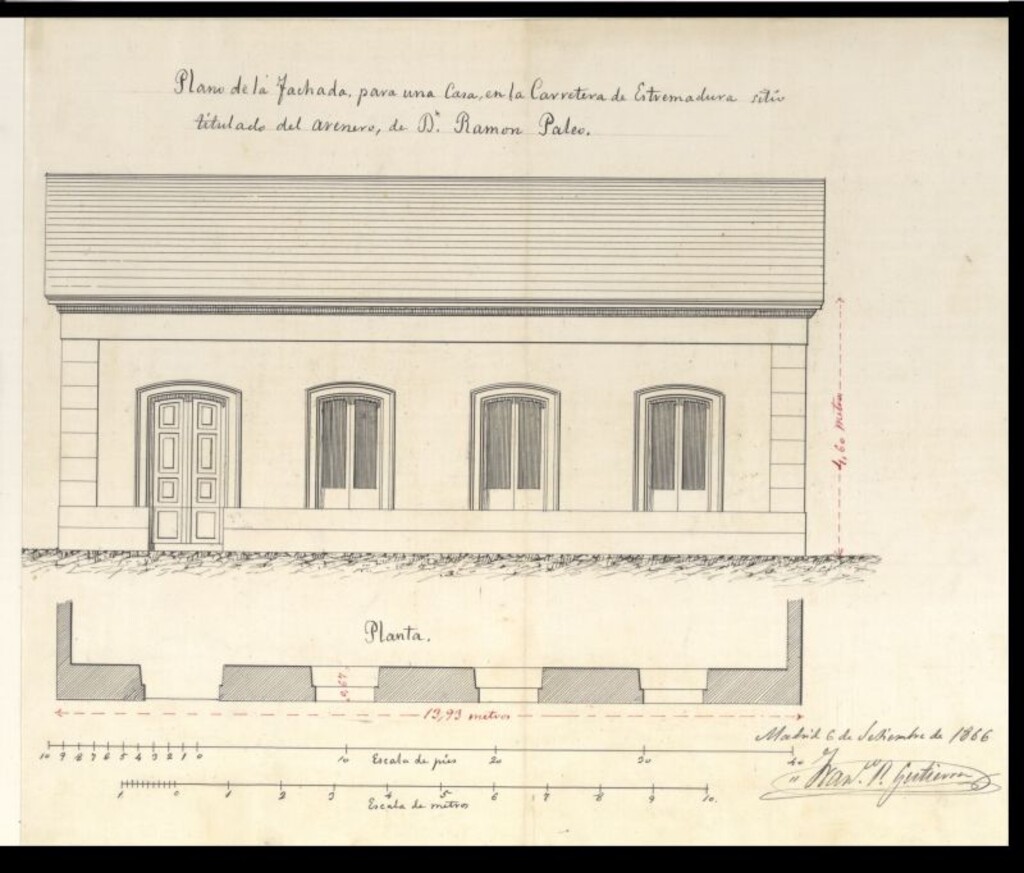 Plano de la Fachada, para una Casa, en la Carretera de Estremadura sitio
titulado del arenero, de Dn. Ramon Paleo.
4,60 metros
Planta.
13,93 metros
Madrid 6 de Setiembre de 1866
10 9 8 7 6 5 4 3 2 1 0 10 20 30 40
Escala de pies
P. Gutierrez
1 0 1 2 3 4 5 6 7 8 9 10.
Escala de metros